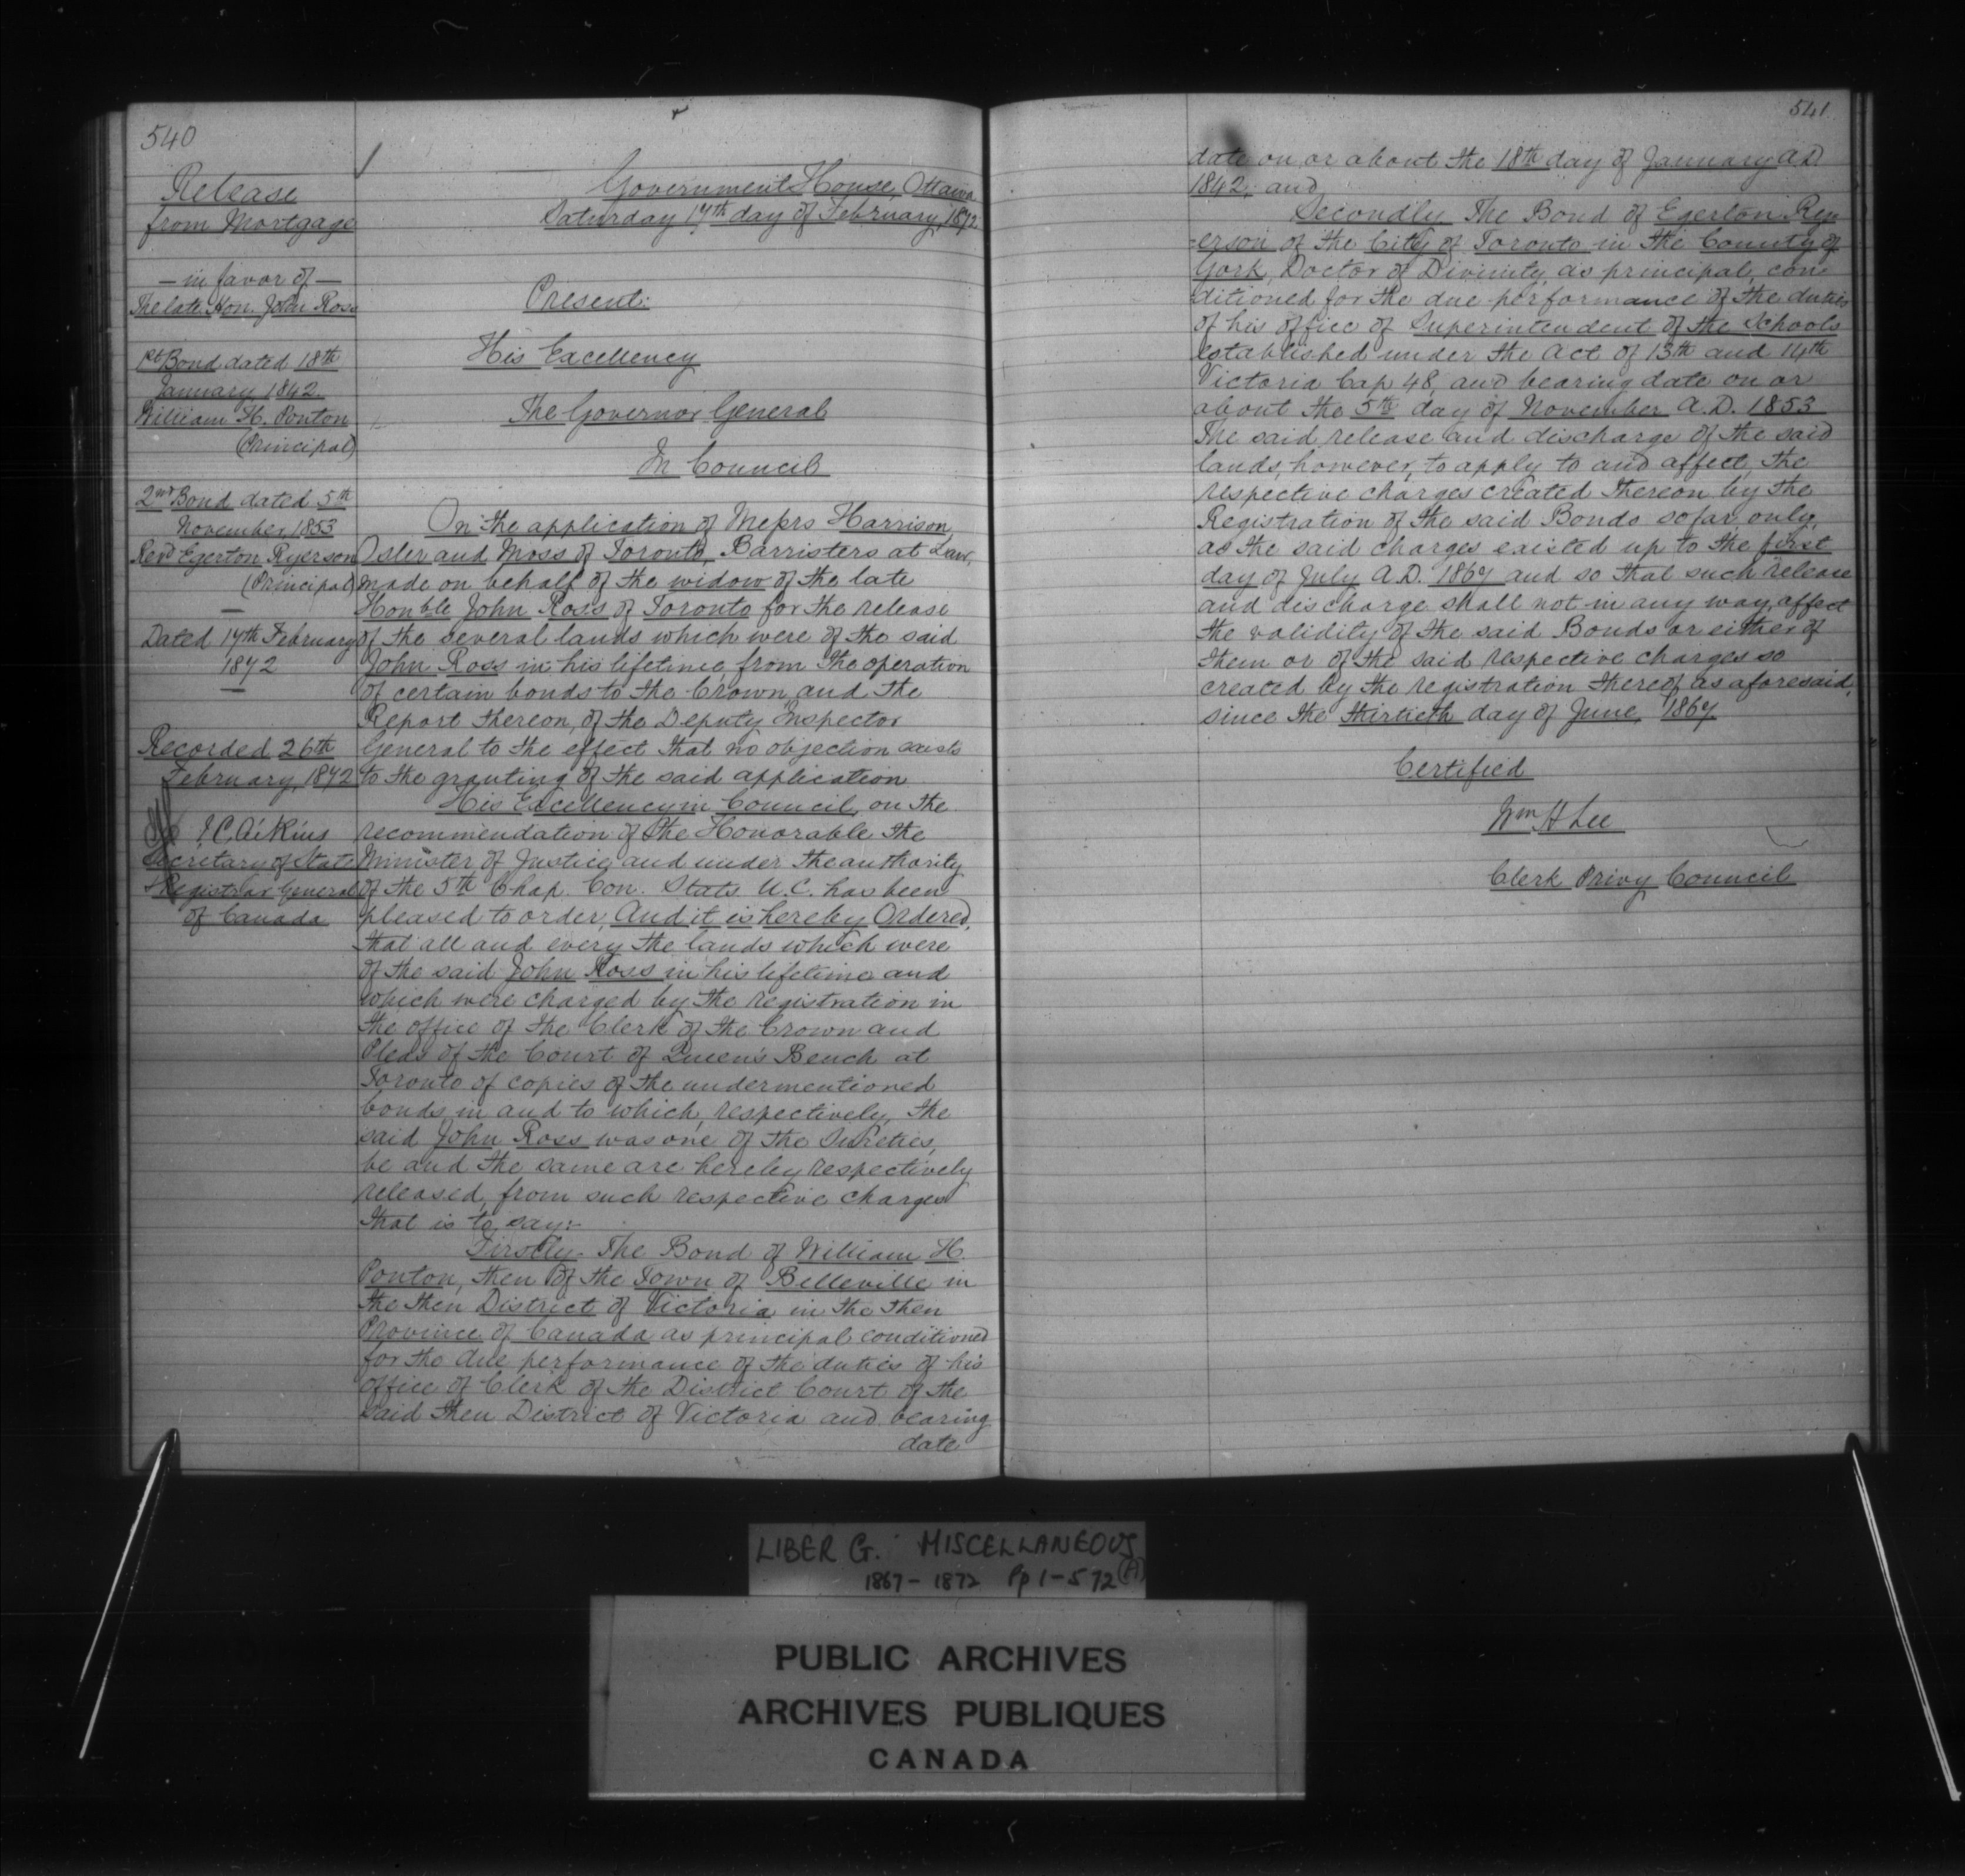 540
Release
from Mortgage
— in favor of —
The late Hon. John Ross
1st Bond dated 18th
January 1842.
William H. Ponton
(Principal)
2nd Bond dated 5th
November, 1853
Revd Egerton Ryerson
(Principal)
Dated 17th February
1872
Recorded 26th
February, 1872
J. C. Aikins
Secretary of State
& Registrar General
of Canada
Government House, Ottawa
Saturday 17th day of February, 1872
Present:
His Excellency
The Governor General
In Council
On the application of Messrs Harrison,
Osler and Moss of Toronto, Barristers at Law,
made on behalf of the widow of the late
Honble John Ross of Toronto for the release
of the several lands which were of the said
John Ross in his lifetime, from the operation
of certain bonds to the Crown, and the
Report thereon, of the Deputy Inspector
General to the effect that no objection exists
to the granting of the said application
His Excellency in Council, on the
recommendation of the Honorable the
Minister of Justice, and under the authority
of the 5th Chap. Con. Stats. U.C. has been
pleased to order, And it is hereby Ordered,
that all and every the lands which were
of the said John Ross in his lifetime and
which were charged by the registration in
the office of the Clerk of the Crown and
Pleas of the Court of Queen's Bench at
Toronto of copies of the undermentioned
bonds, in and to which, respectively, the
said John Ross was one of the Sureties,
be and the same are hereby respectively
released, from such respective charges
that is to say:-
Firstly. The Bond of William H.
Ponton, then of the Town of Belleville in
the then District of Victoria in the then
Province of Canada as principal conditioned
for the due performance of the duties of his
office of Clerk of the District Court of the
said then District of Victoria and bearing
date
541
date on or about the 18th day of January A.D.
1842; and
Secondly The Bond of Egerton Ry-
-erson of the City of Toronto in the County of
York, Doctor of Divinity, as principal, con-
ditioned for the due performance of the duties
of his office of Superintendent of the Schools
established under the Act of 13th and 14th
Victoria Cap 48, and bearing date on or
about the 5th day of November A.D. 1853
The said release and discharge of the said
lands, however, to apply to and affect, the
respective charges created thereon by the
Registration of the said Bonds so far only,
as the said charges existed up to the first
day of July A.D. 1867 and so that such release
and discharge shall not in any way, affect
the validity of the said Bonds or either of
them or of the said respective charges so
created by the registration thereof as aforesaid,
since the thirtieth day of June, 1867.
Certified
Wm H Lee
Clerk Privy Council
LIBER G. MISCELLANEOUS
1867 - 1872 Pp 1-572 (A)
PUBLIC ARCHIVES
ARCHIVES PUBLIQUES
CANADA